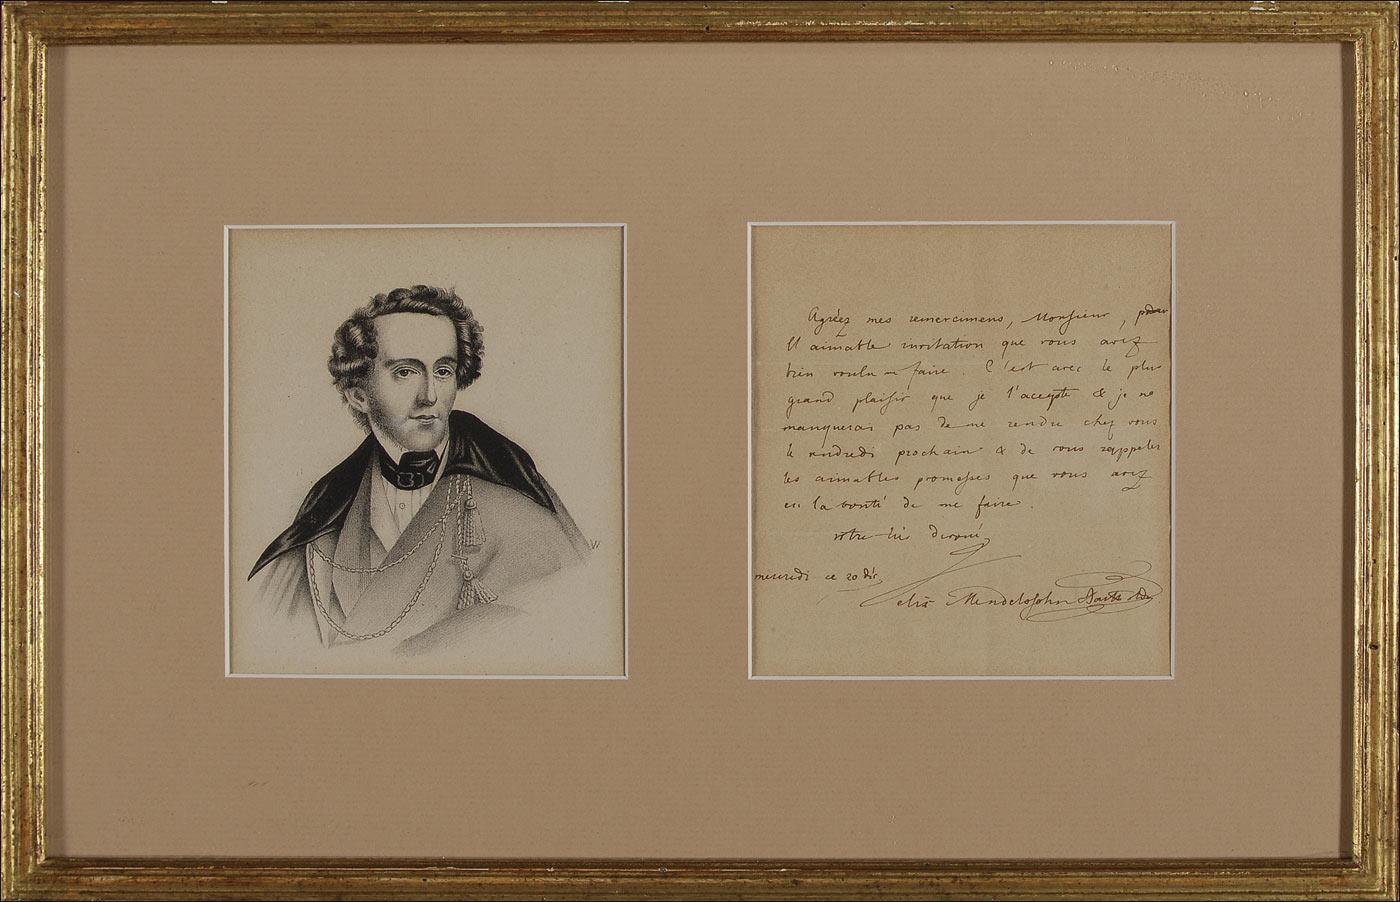 Agréez mes remercimens, Monsieur, pour
l'aimable invitation que vous avez
bien voulu me faire. C'est avec le plus
grand plaisir que je l'accepte & je ne
manquerai pas de me rendre chez vous
le vendredi prochain & de vous rappeler
les aimables promesses que vous avez
eu la bonté de me faire.
votre très dévoué
mercredi ce 20 Déc
Felix Mendelssohn Bartholdy
W